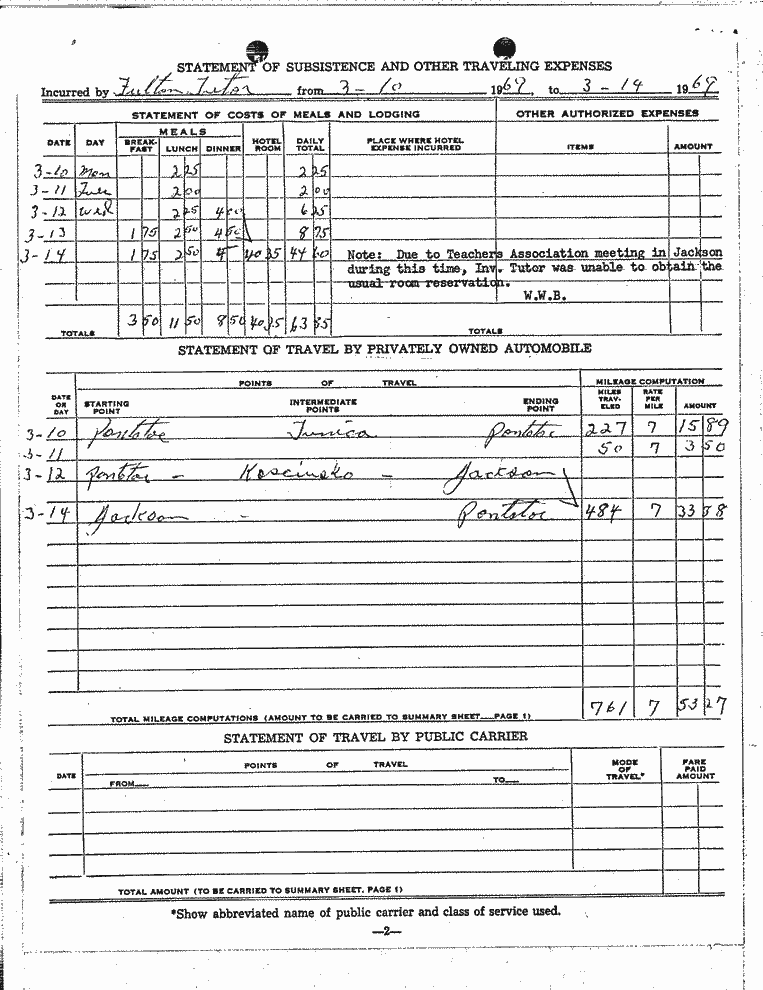 STATEMENT OF SUBSISTENCE AND OTHER TRAVELING EXPENSES
Incurred by Fulton Tutor from 3-10 1969, to 3-14 1969
STATEMENT OF COSTS OF MEALS AND LODGING OTHER AUTHORIZED EXPENSES
DATE DAY MEALS BREAK-FAST LUNCH DINNER HOTEL ROOM DAILY TOTAL PLACE WHERE HOTEL EXPENSE INCURRED ITEMS AMOUNT
3-10 Mon 2 25 2 25
3-11 Tues 2 00 2 00
3-12 Wed 2 25 4 00 6 25
3-13 1 75 2 50 4 50 8 75
3-14 1 75 2 50 40 35 44 60 Note: Due to Teachers Association meeting in Jackson
during this time, Inv. Tutor was unable to obtain the
usual room reservation.
W.W.B.
TOTALS 3 50 11 50 8 50 40 35 63 85 TOTALS
STATEMENT OF TRAVEL BY PRIVATELY OWNED AUTOMOBILE
POINTS OF TRAVEL MILEAGE COMPUTATION
DATE OR DAY STARTING POINT INTERMEDIATE POINTS ENDING POINT MILES TRAV-ELED RATE PER MILE AMOUNT
3-10 Pontotoc Tunica Pontotoc 227 7 15 89
3-11 50 7 3 50
3-12 Pontotoc - Kosciusko - Jackson
3-14 Jackson - Pontotoc 484 7 33 88
TOTAL MILEAGE COMPUTATIONS (AMOUNT TO BE CARRIED TO SUMMARY SHEET PAGE 1) 761 7 53 27
STATEMENT OF TRAVEL BY PUBLIC CARRIER
DATE POINTS OF TRAVEL MODE OF TRAVEL* FARE PAID AMOUNT
FROM TO
TOTAL AMOUNT (TO BE CARRIED TO SUMMARY SHEET. PAGE 1)
*Show abbreviated name of public carrier and class of service used.
—2—